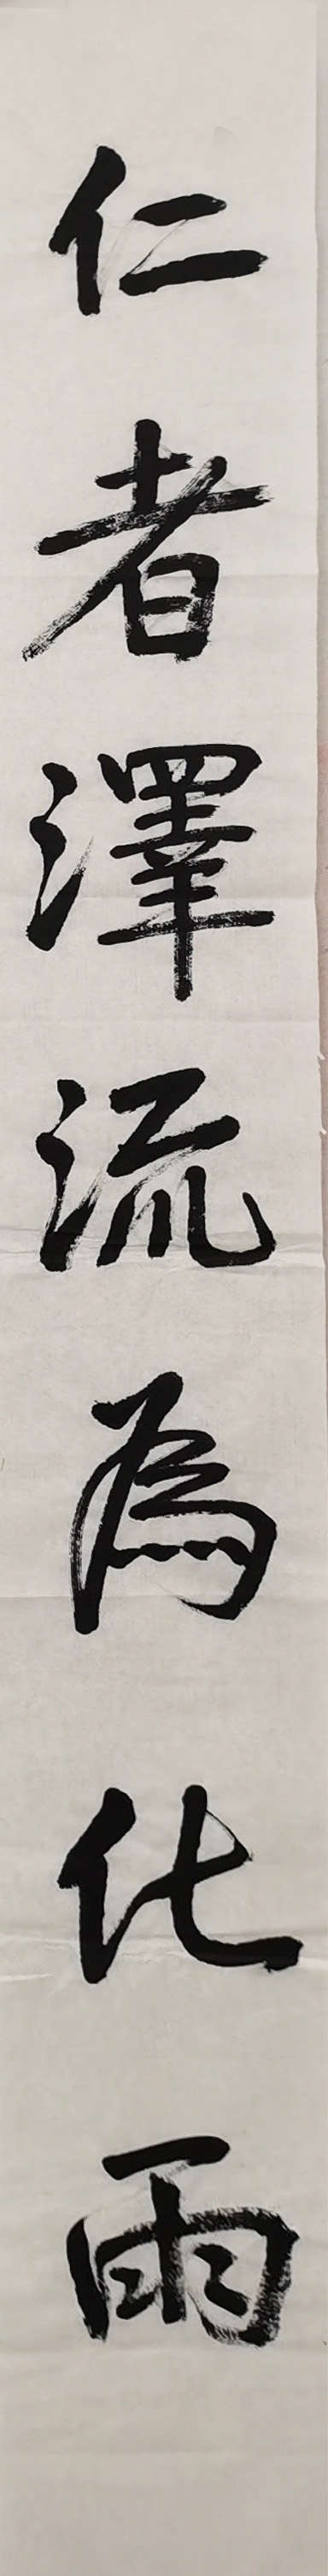 仁者澤流為化雨